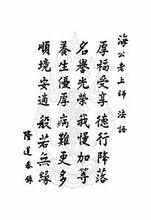 海公老上師 法語
厚福受享德行降落
名譽光榮我慢加等
養生優厚病難更多
順境安適般若無緣
隆道恭錄